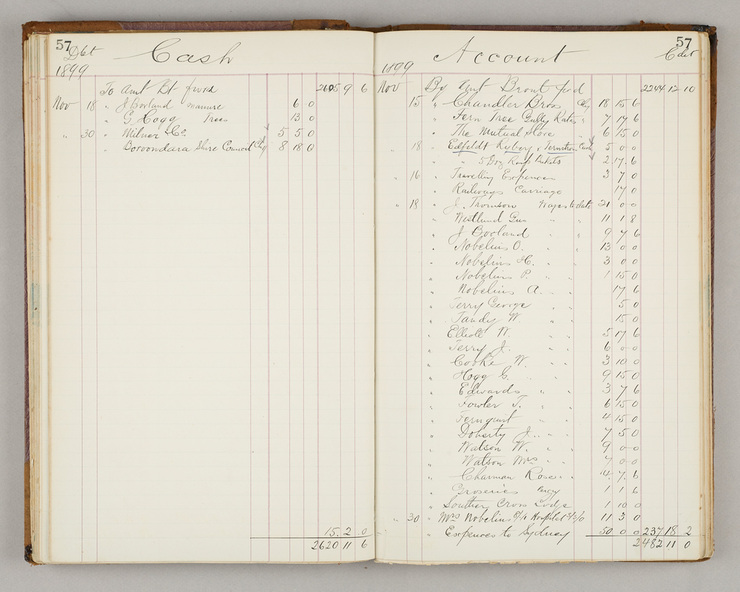 57
Dbt Cash
1899
To Amt Bt forwd 2605 9 6
Nov 18 " J. Borland manure 6 0
" G Hogg Trees 13 0
" 30 " Milner & Co. 5 5 0
" Boroondara Shire Council Chq 8 18 0
15 2 0
2620 11 6
57
Account Cdit
1899
Nov By Amt Brout fwd 2244 12 10
15 " Chandler Bros Chq 18 15 6
" Fern Tree Gully 7 17 6
" The Mutual Store " 6 15 0
" 18 " 5 0 0
" " 5 Doz 2 17 6
" 16 " Travelling Expences 3 7 0
" Railways Carriage 17 0
" 18 " J. Thomson Wages to date 21 0 0
" Westlund Gus " " 11 1 8
" J Borland " " 9 7 6
" Nobelius O. " " 13 0 0
" Nobelius H. " " 3 0 0
" Nobelius P. " " 1 15 0
" Nobelius A. " " 17 6
" Terry George " " 5 0
" Tandy W " " 15 0
" Elliott W. " " 5 17 6
" Terry J. " " 6 0 0
" Cooke W. " " 3 10 0
" Hogg G. " " 9 15 0
" Edwards " " 3 7 6
" Fowler T. " " 6 15 0
" Fernquist " " 4 15 0
" Doherty J. " " 7 5 0
" Watson W. " " 9 0 0
" Watson Mrs " " 0 0
" Charman Rose " " 7 6
" Groceries 1 1 6
" Southern Cross Lodge 1 10 0
" 30 " Mrs Nobelius 11 3 0
" Expences to Sydney 50 0 0 237 18 2
2482 11 0